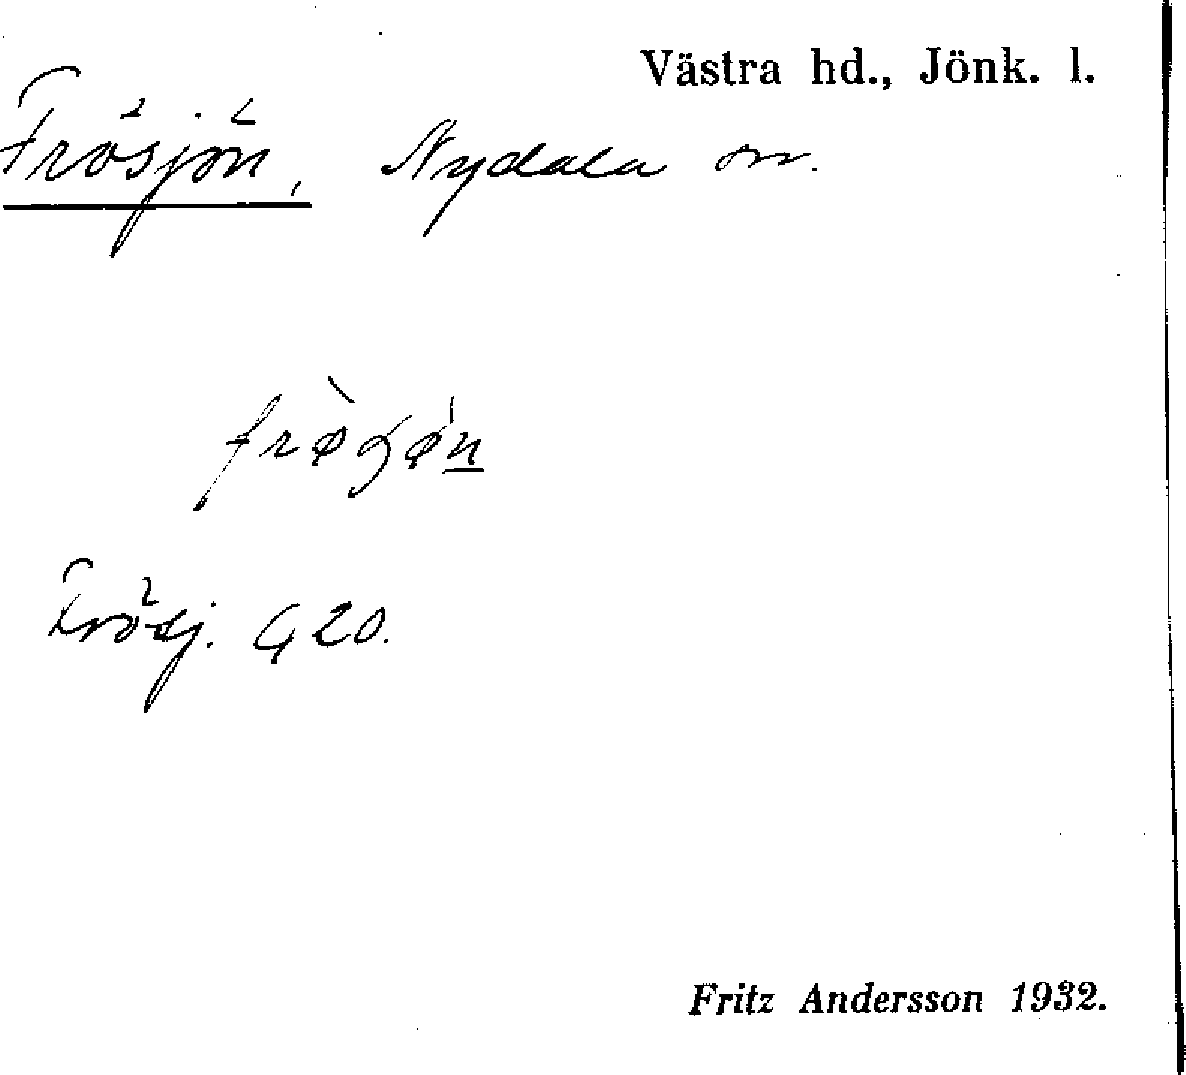 Västra hd., Jönk. l.
Frösjön, Nydala sn.
Frösj. G 20.
Fritz Andersson 1932.